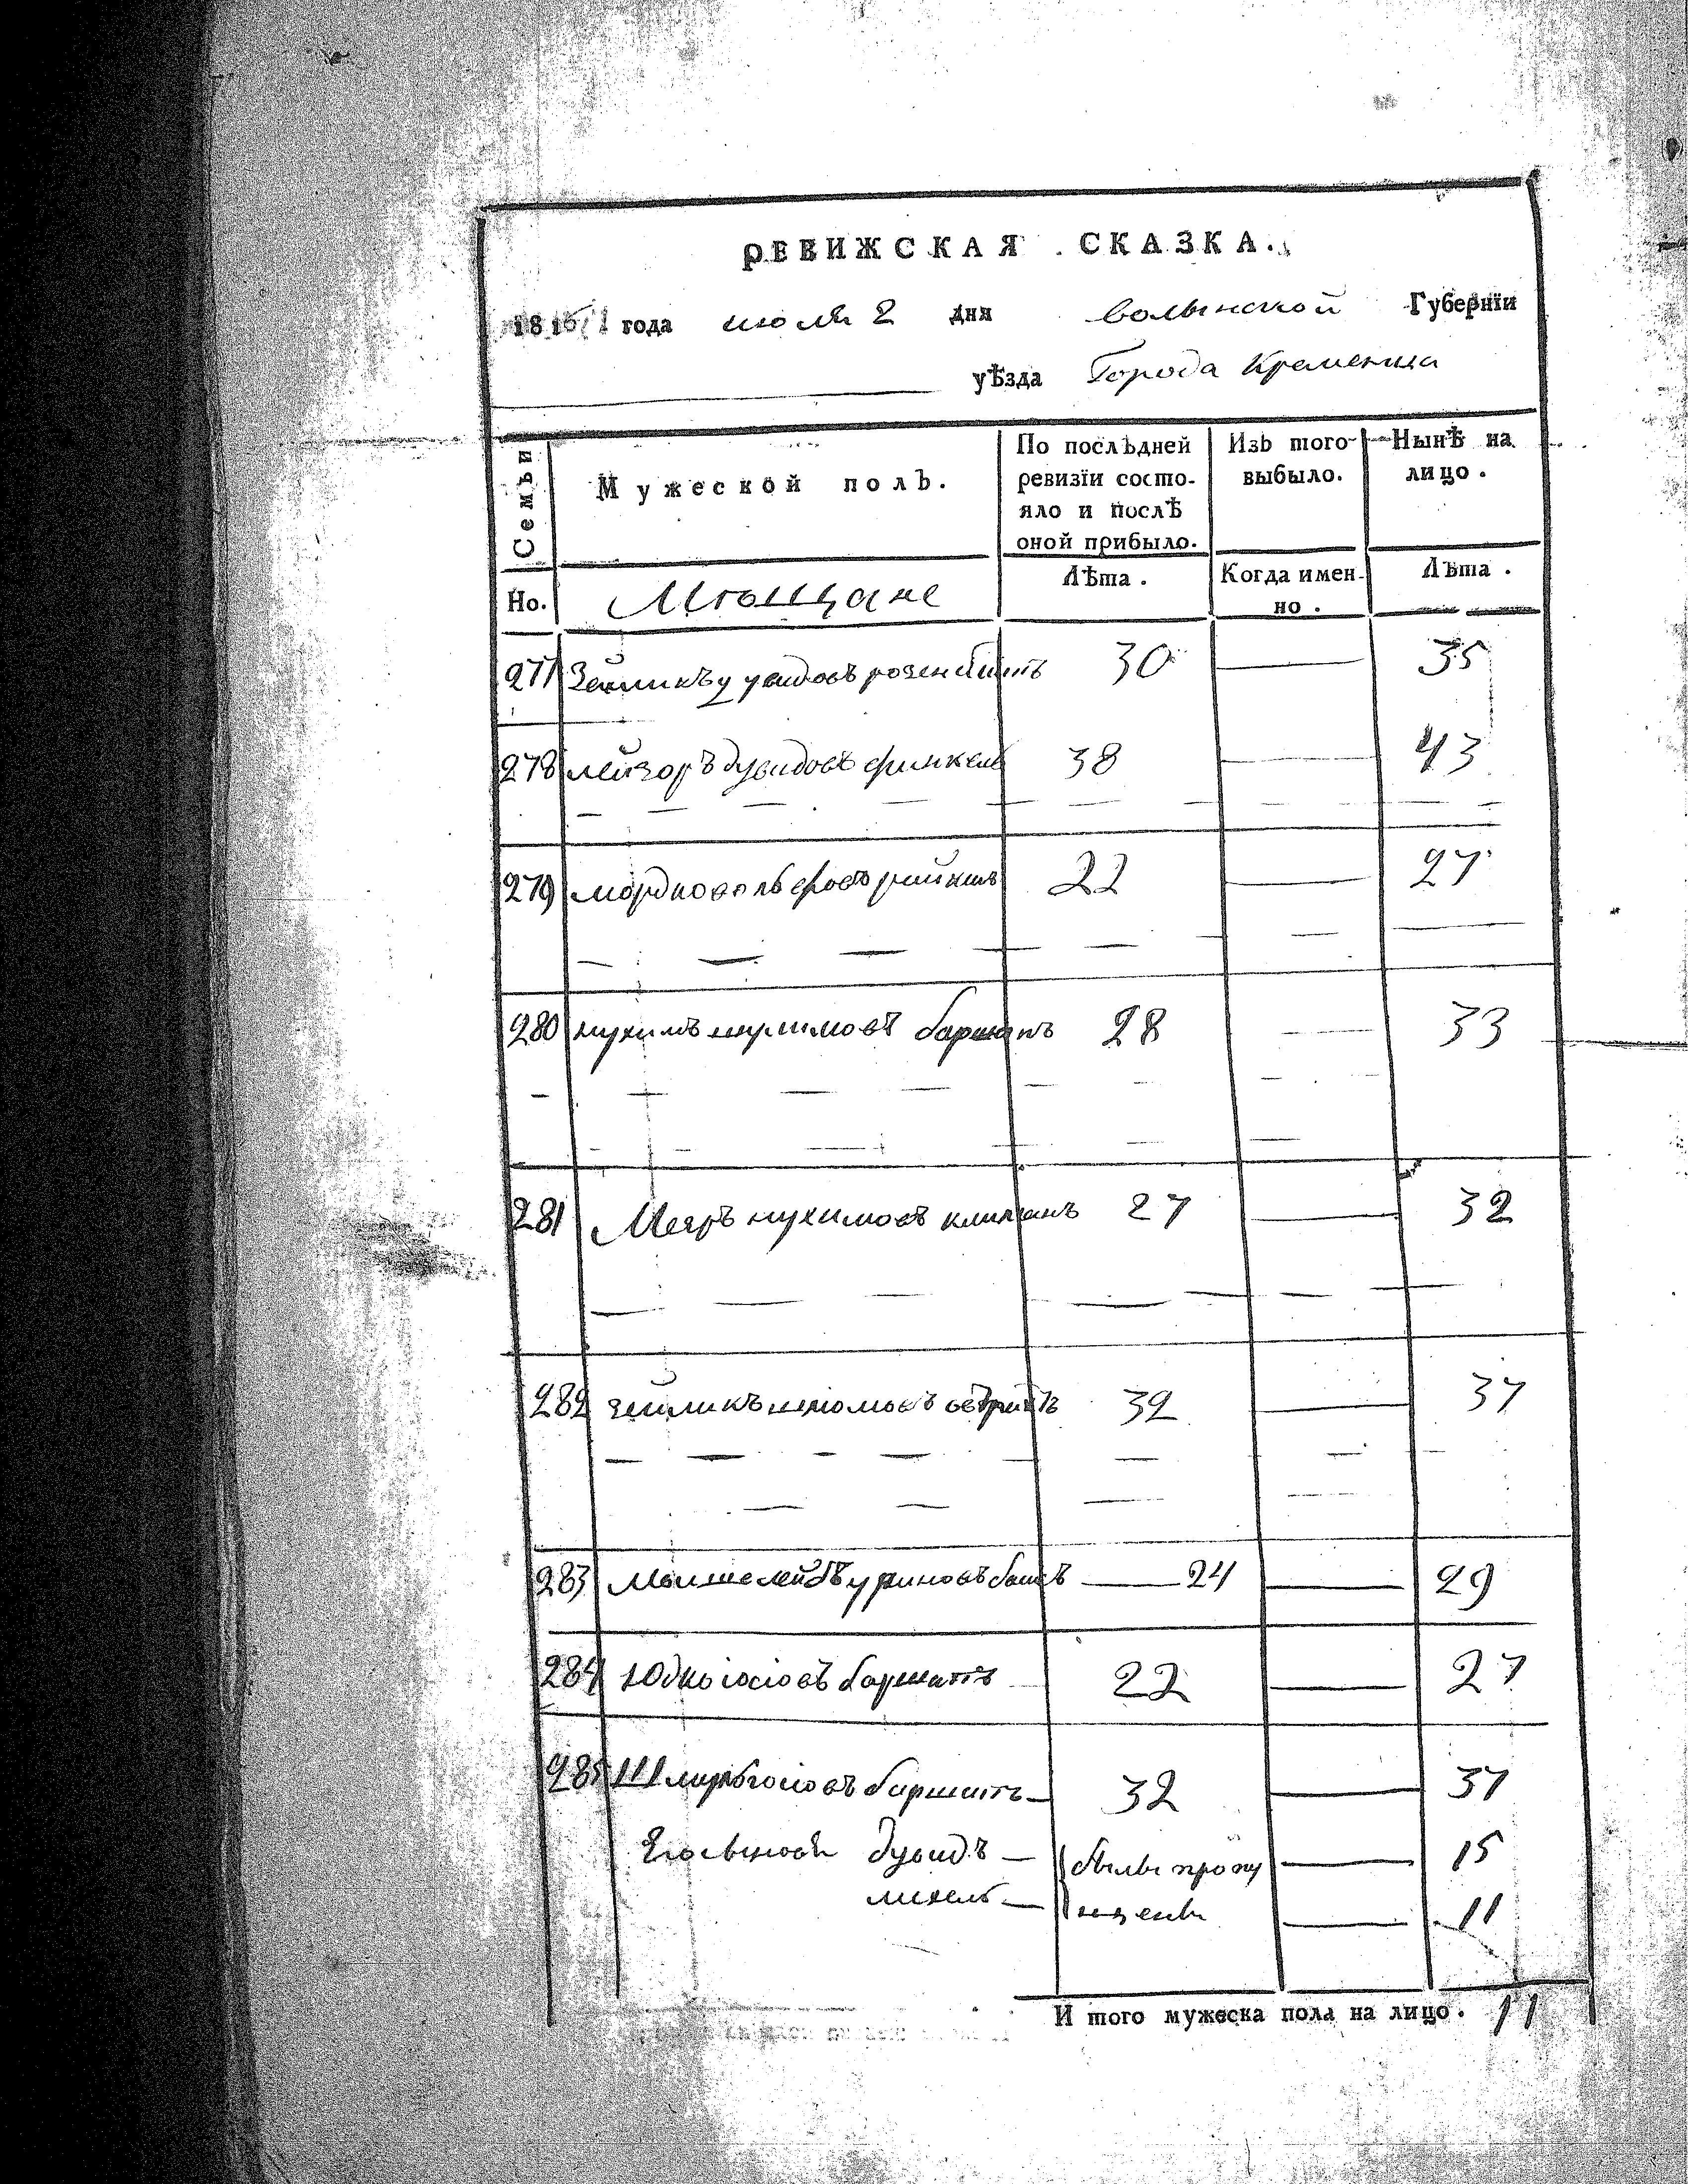 РЕВИЖСКАЯ СКАЗКА.
1816 года июля 2 дня волынской Губернїи
уѣзда Города Кременца
Семьи
Мужеской полъ.
По послѣдней ревизїи состо-
яло и послѣ
оной прибыло.
Изъ того
выбыло.
Нынѣ на
лицо.
Но. Мѣщане Лѣта. Когда имен-
но. Лѣта.
277 Зейликъ розенблитъ 30 — 35
278 лейзоръ дувидовъ финкель 38 — 43
279 мордко волфовъ 22 — 27
280 нухимъ баршатъ 28 — 33
281 Мееръ нухимовъ 27 — 32
282 зейликъ 32 — 37
283 Мошелейбъ — 24 — 29
284 Юдко іосіовъ баршатъ 22 — 27
285 іосіовъ баршатъ — 32 — 37
Его сыновья дувидъ — были пропу — 15
михель — щены — 11
И того мужеска пола на лицо. 11